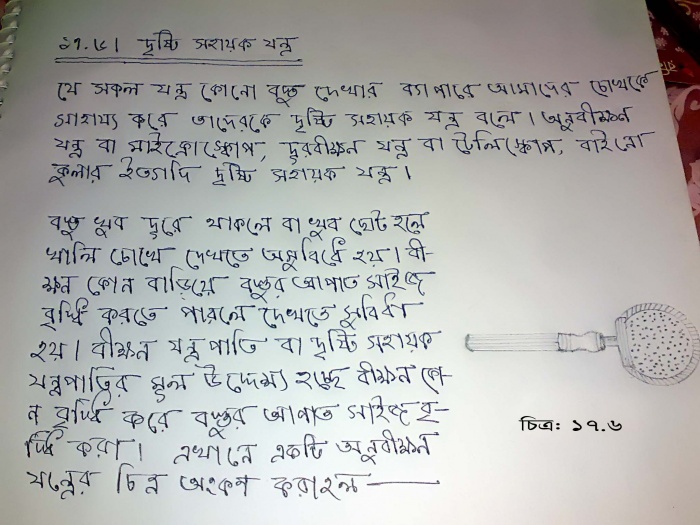 ১৭.৬। দৃষ্টি সহায়ক যন্ত্র
যে সকল যন্ত্র কোনো বস্তু দেখার ব্যাপারে আমাদের চোখকে
সাহায্য করে তাদেরকে দৃষ্টি সহায়ক যন্ত্র বলে। অনুবীক্ষন
যন্ত্র বা মাইক্রোস্কোপ, দুরবীক্ষন যন্ত্র বা টেলিস্কোপ, বাইনো
কুলার ইত্যাদি দৃষ্টি সহায়ক যন্ত্র।
বস্তু খুব দুরে থাকলে বা খুব ছোট হলে
খালি চোখে দেখতে অসুবিধে হয়। বী-
ক্ষন কোন বাড়িয়ে বস্তুর আপাত সাইজ
বৃদ্ধি করতে পারলে দেখতে সুবিধা
হয়। বীক্ষন যন্ত্রপাতি বা দৃষ্টি সহায়ক
যন্ত্রপাতির মূল উদ্দেশ্য হচ্ছে বীক্ষন কো-
ন বৃদ্ধি করে বস্তুর আপাত সাইজ বৃ-
দ্ধি করা। এখানে একটি অনুবীক্ষন
যন্ত্রের চিত্র অংকন করাহল—
চিত্র: ১৭.৬